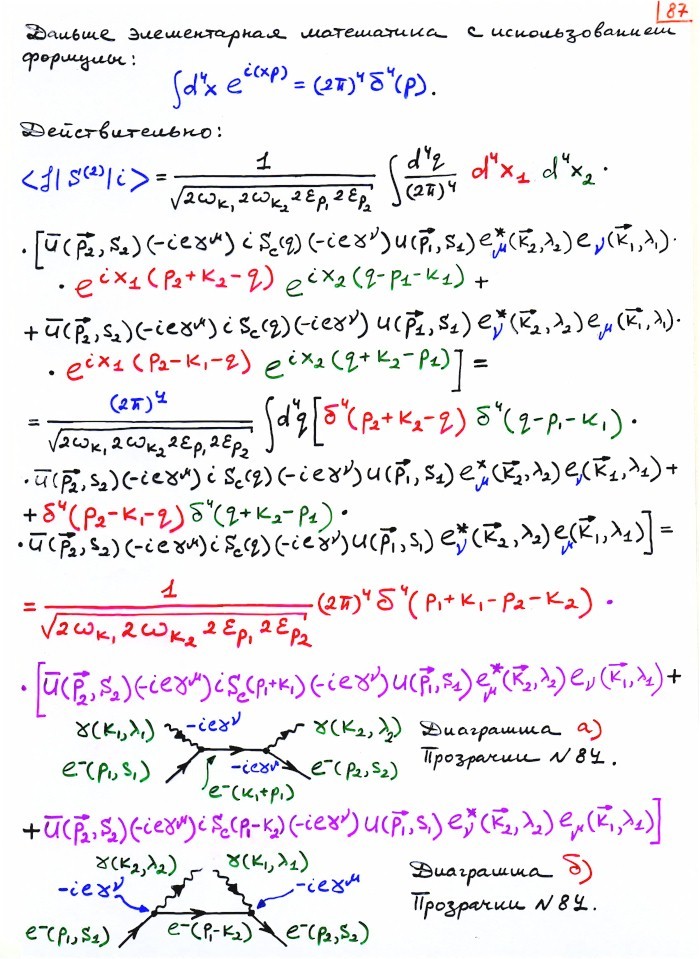 87
Дальше элементарная математика с использованием
формулы:
∫d⁴x e^{i(xp)} = (2π)⁴ δ⁴(p).
Действительно:
<f|S⁽²⁾|i> = 1/√(2ω_{k₁} 2ω_{k₂} 2ε_{p₁} 2ε_{p₂}) ∫ d⁴q/(2π)⁴ d⁴x₁ d⁴x₂ ·
· [ū(p⃗₂, s₂)(-ieγ^μ) i S_c(q)(-ieγ^ν) u(p⃗₁, s₁) e*_μ(k⃗₂, λ₂) e_ν(k⃗₁, λ₁) ·
· e^{ix₁(p₂+k₂-q)} e^{ix₂(q-p₁-k₁)} +
+ ū(p⃗₂, s₂)(-ieγ^μ) i S_c(q)(-ieγ^ν) u(p⃗₁, s₁) e*_ν(k⃗₂, λ₂) e_μ(k⃗₁, λ₁) ·
· e^{ix₁(p₂-k₁-q)} e^{ix₂(q+k₂-p₁)}] =
= (2π)⁴/√(2ω_{k₁} 2ω_{k₂} 2ε_{p₁} 2ε_{p₂}) ∫d⁴q [δ⁴(p₂+k₂-q) δ⁴(q-p₁-k₁) ·
· ū(p⃗₂, s₂)(-ieγ^μ) i S_c(q)(-ieγ^ν) u(p⃗₁, s₁) e*_μ(k⃗₂, λ₂) e_ν(k⃗₁, λ₁) +
+ δ⁴(p₂-k₁-q) δ⁴(q+k₂-p₁) ·
· ū(p⃗₂, s₂)(-ieγ^μ) i S_c(q)(-ieγ^ν) u(p⃗₁, s₁) e*_ν(k⃗₂, λ₂) e_μ(k⃗₁, λ₁)] =
= 1/√(2ω_{k₁} 2ω_{k₂} 2ε_{p₁} 2ε_{p₂}) (2π)⁴ δ⁴(p₁+k₁-p₂-k₂) ·
· [ū(p⃗₂, s₂)(-ieγ^μ) i S_c(p₁+k₁)(-ieγ^ν) u(p⃗₁, s₁) e*_μ(k⃗₂, λ₂) e_ν(k⃗₁, λ₁) +
γ(k₁, λ₁) -ieγ^ν γ(k₂, λ₂) Диаграмма а)
e⁻(p₁, s₁) -ieγ^μ e⁻(p₂, s₂) Прозрачки N 84.
e⁻(k₁+p₁)
+ ū(p⃗₂, s₂)(-ieγ^μ) i S_c(p₁-k₂)(-ieγ^ν) u(p⃗₁, s₁) e*_ν(k⃗₂, λ₂) e_μ(k⃗₁, λ₁)]
γ(k₂, λ₂) γ(k₁, λ₁) Диаграмма б)
-ieγ^ν -ieγ^μ Прозрачки N 84.
e⁻(p₁, s₁) e⁻(p₁-k₂) e⁻(p₂, s₂)